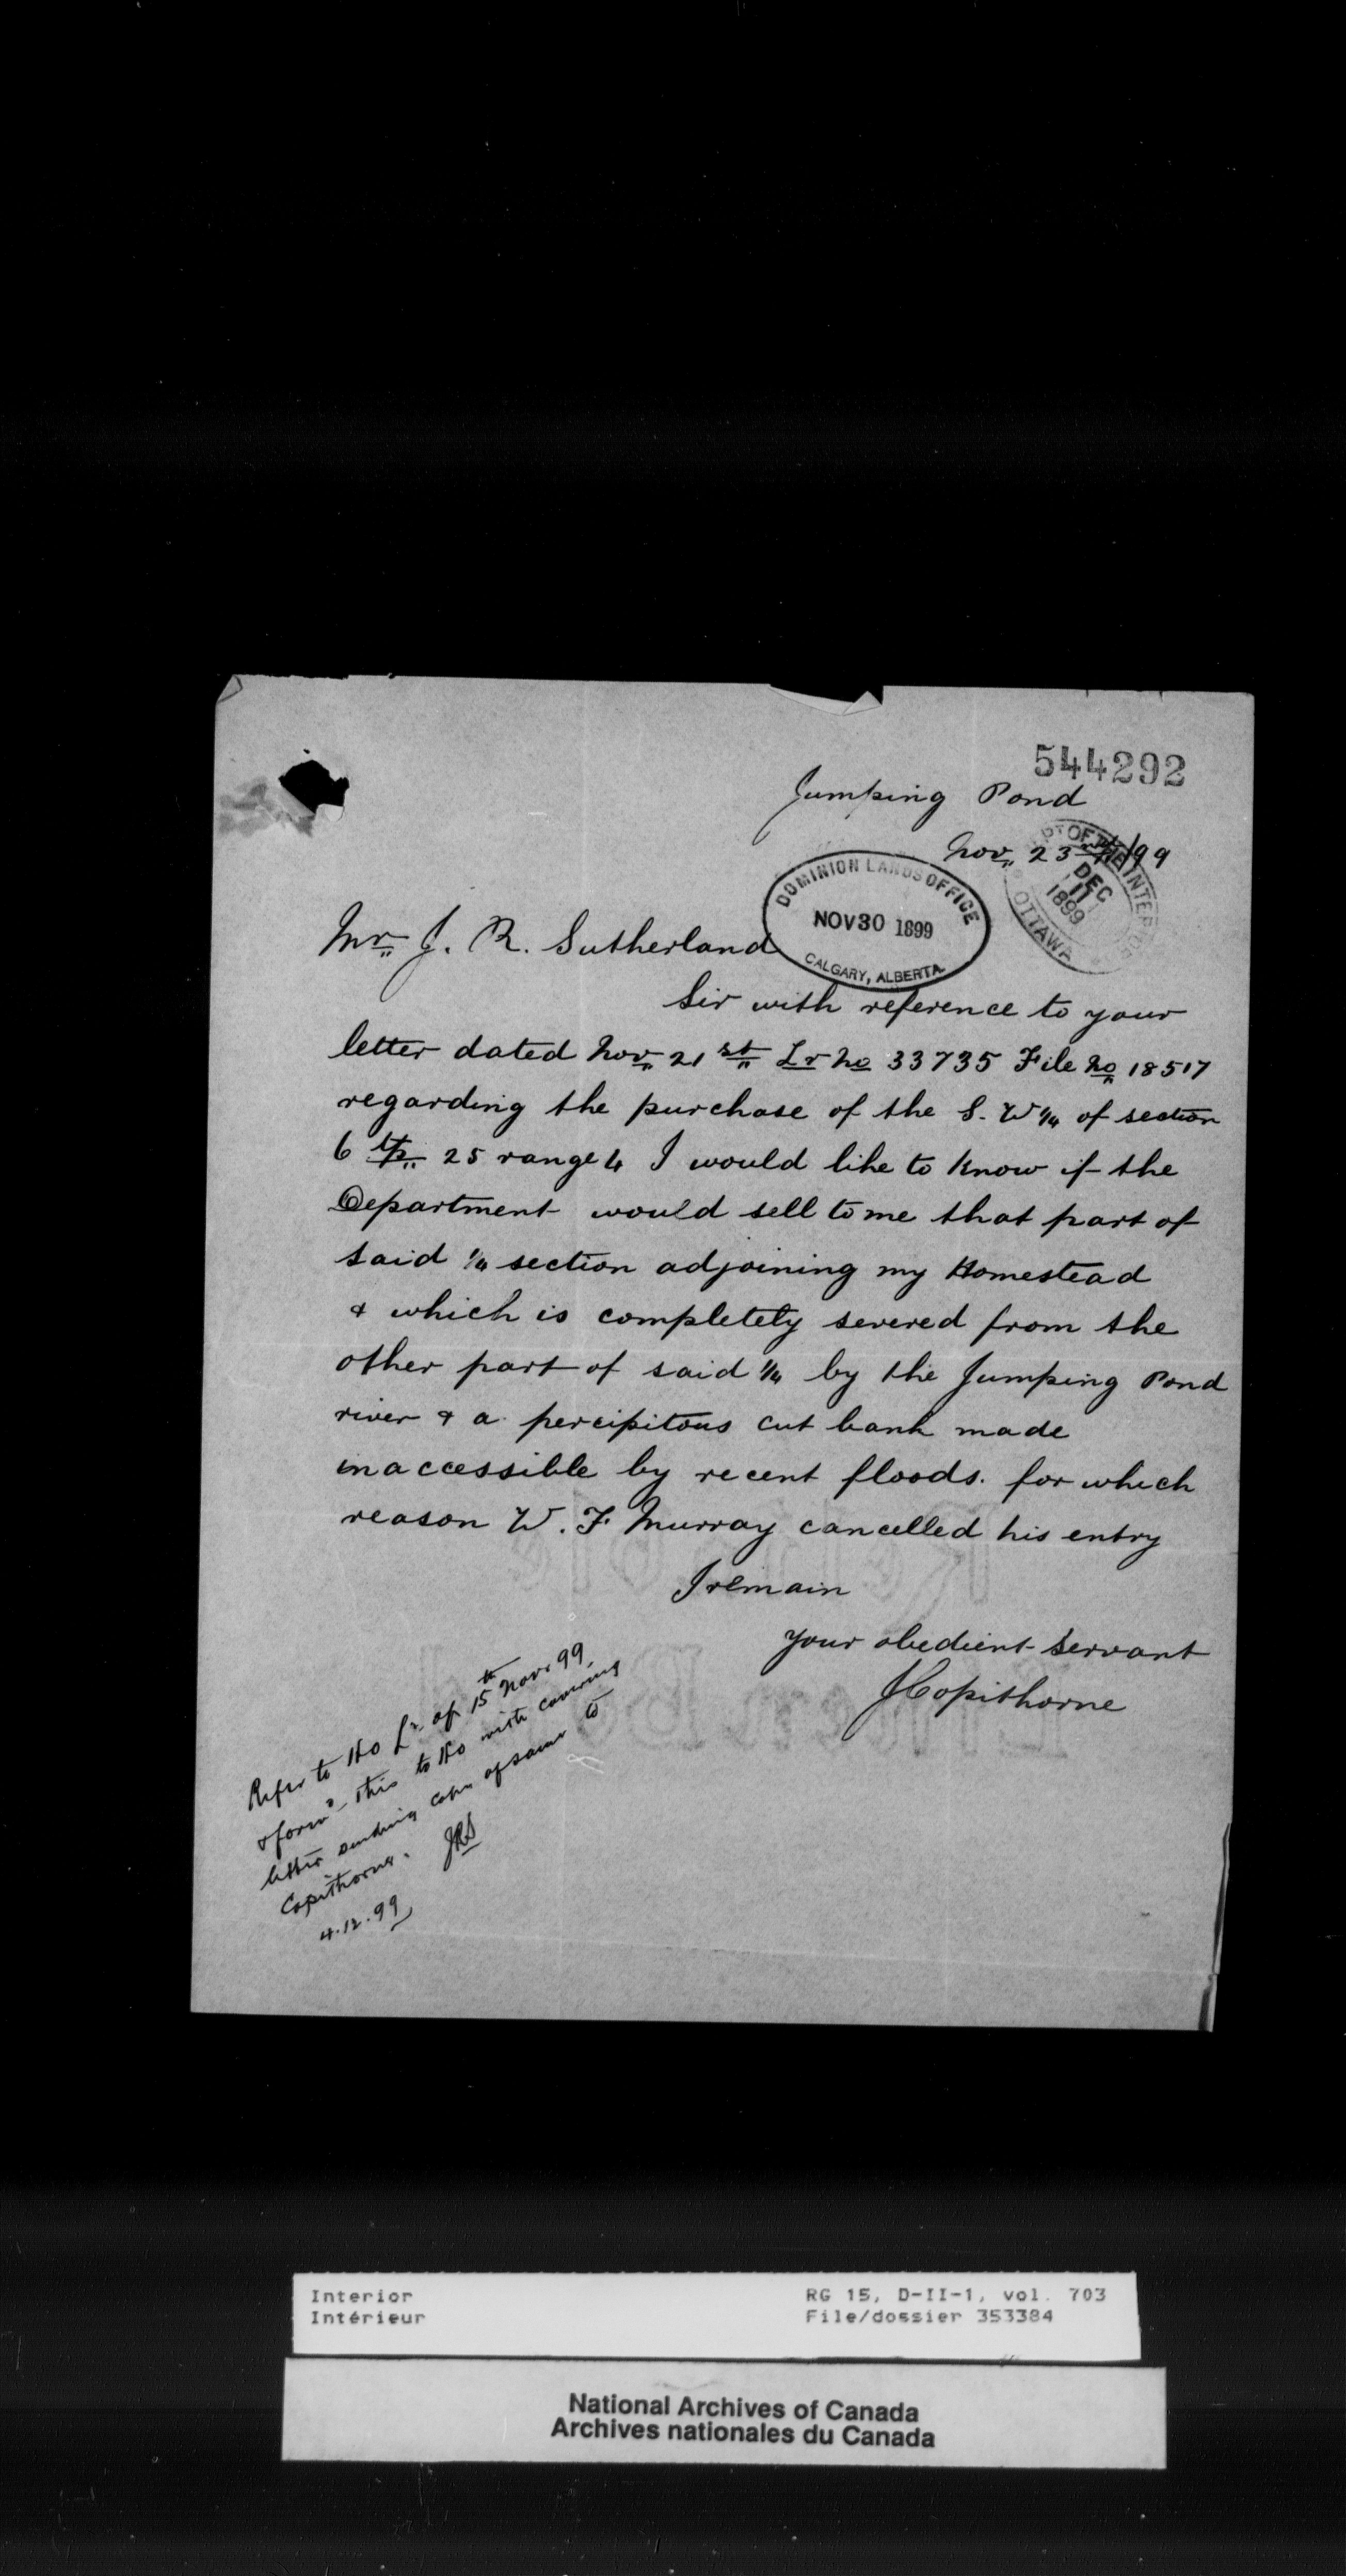 544292
Jumping Pond
Nov 23rd /99
DEPT OF THE INTERIOR
DEC 11 1899
OTTAWA
DOMINION LANDS OFFICE
NOV 30 1899
CALGARY, ALBERTA
Mr J. R. Sutherland
Sir with reference to your
letter dated Nov 21st Lr No 33735 File No 18517
regarding the purchase of the S. W 1/4 of section
6 tp 25 range 4 I would like to know if the
Department would sell to me that part of
said 1/4 section adjoining my Homestead
& which is completely severed from the
other part of said 1/4 by the Jumping Pond
river & a percipitous cut bank made
inaccessible by recent floods. for which
reason W. F Murray cancelled his entry
I remain
your obedient servant
J Copithorne
Refer to HO Lr of 15th Novr 99
& forwd this to HO with covering
letter sending copy of same to
Copithorne. JRS
4.12.99
Interior
Intérieur
RG 15, D-II-1, vol. 703
File/dossier 353384
National Archives of Canada
Archives nationales du Canada